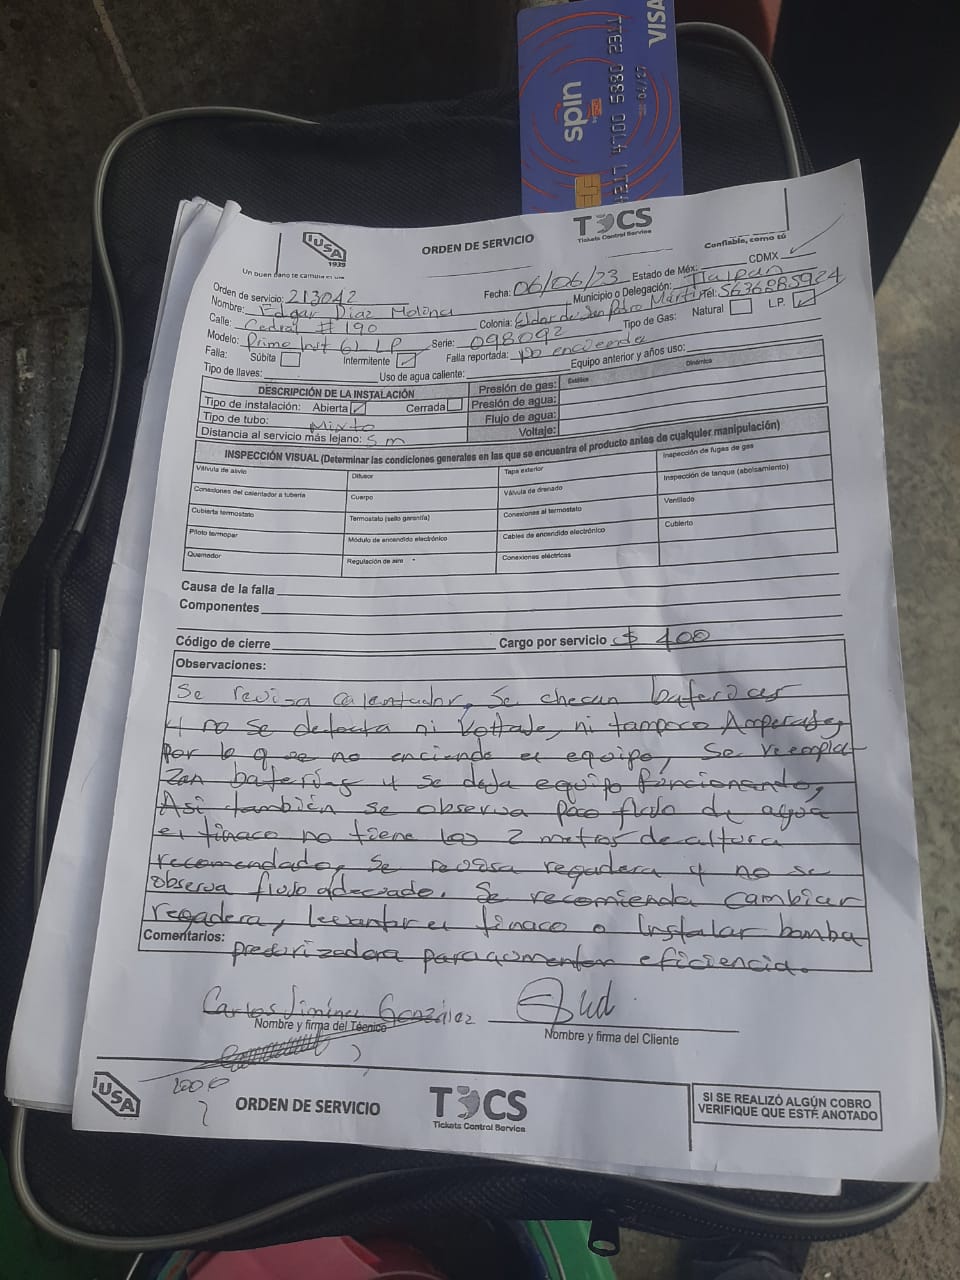 spin
VISA
4217 4700 5880 2311
04/27
IUSA
1939
Un buen baño te cambia el día
ORDEN DE SERVICIO
TOCS
Tickets Control Service
Confiable, como tú
Orden de servicio: 213042
Fecha: 06/06/23 Estado de Méx: CDMX
Nombre: Edgar Diaz Molina
Municipio o Delegación: Tlalpan
Calle: Cedral # 190 Colonia: San Pedro Martir Tel: 5636885924
Modelo: Prime Inst 6L LP Serie: 098092 Tipo de Gas: Natural L.P.
Falla: Súbita Intermitente Falla reportada: No encienda
Tipo de llaves: Uso de agua caliente: Equipo anterior y años uso:
DESCRIPCIÓN DE LA INSTALACIÓN Presión de gas: Estática Dinámica
Tipo de instalación: Abierta Cerrada Presión de agua:
Tipo de tubo: Mixto Flujo de agua:
Distancia al servicio más lejano: 5 m Voltaje:
INSPECCIÓN VISUAL (Determinar las condiciones generales en las que se encuentra el producto antes de cualquier manipulación)
Válvula de alivio Difusor Tapa exterior Inspección de fugas de gas
Conexiones del calentador a tubería Cuerpo Válvula de drenado Inspección de tanque (abolsamiento)
Cubierta termostato Termostato (sello garantía) Conexiones al termostato Ventilado
Piloto termopar Módulo de encendido electrónico Cables de encendido electrónico Cubierto
Quemador Regulación de aire Conexiones eléctricas
Causa de la falla
Componentes
Código de cierre Cargo por servicio $ 400
Observaciones:
Se revisa calentador, Se checan baterias
y no se detecta ni Voltaje, ni tampoco Amperaje,
por lo q se no enciende el equipo, Se reempla
zan baterias y se deja equipo funcionando,
Asi también se observa poco flujo de agua
el tinaco no tiene los 2 metros de altura
recomendado, se revisa regadera y no se
observa flujo adecuado. Se recomienda cambiar
regadera, levantar el tinaco o Instalar bomba
Comentarios: presurizadora para aumentar eficiencia.
Carlos Jiménez González
Nombre y firma del Técnico Nombre y firma del Cliente
IUSA
ORDEN DE SERVICIO
TOCS
Tickets Control Service
SI SE REALIZÓ ALGÚN COBRO
VERIFIQUE QUE ESTÉ ANOTADO